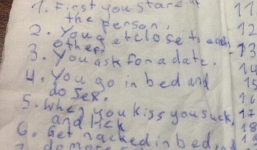 1. First you stare at
the person.
2. You get close to each
others
3. You ask for a date.
4. You go in bed and
do sex.
5. When you kiss you suck,
and lick
6. Get nacked in bed and
11
12
13
14
15
16
17
18